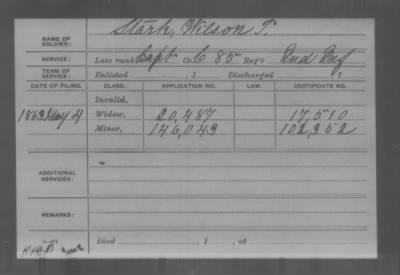 NAME OF SOLDIER: Stark, Wilson T.
SERVICE: Late rank Capt Co. C 85 Reg't Ind Inf
TERM OF SERVICE: Enlisted , 1 Discharged , 1
DATE OF FILING. CLASS. APPLICATION NO. LAW. CERTIFICATE NO.
Invalid,
1863 May 4 Widow, 20,487 17,510
Minor, 146,043 102,352
ADDITIONAL SERVICES:
REMARKS:
Died , 1 , at